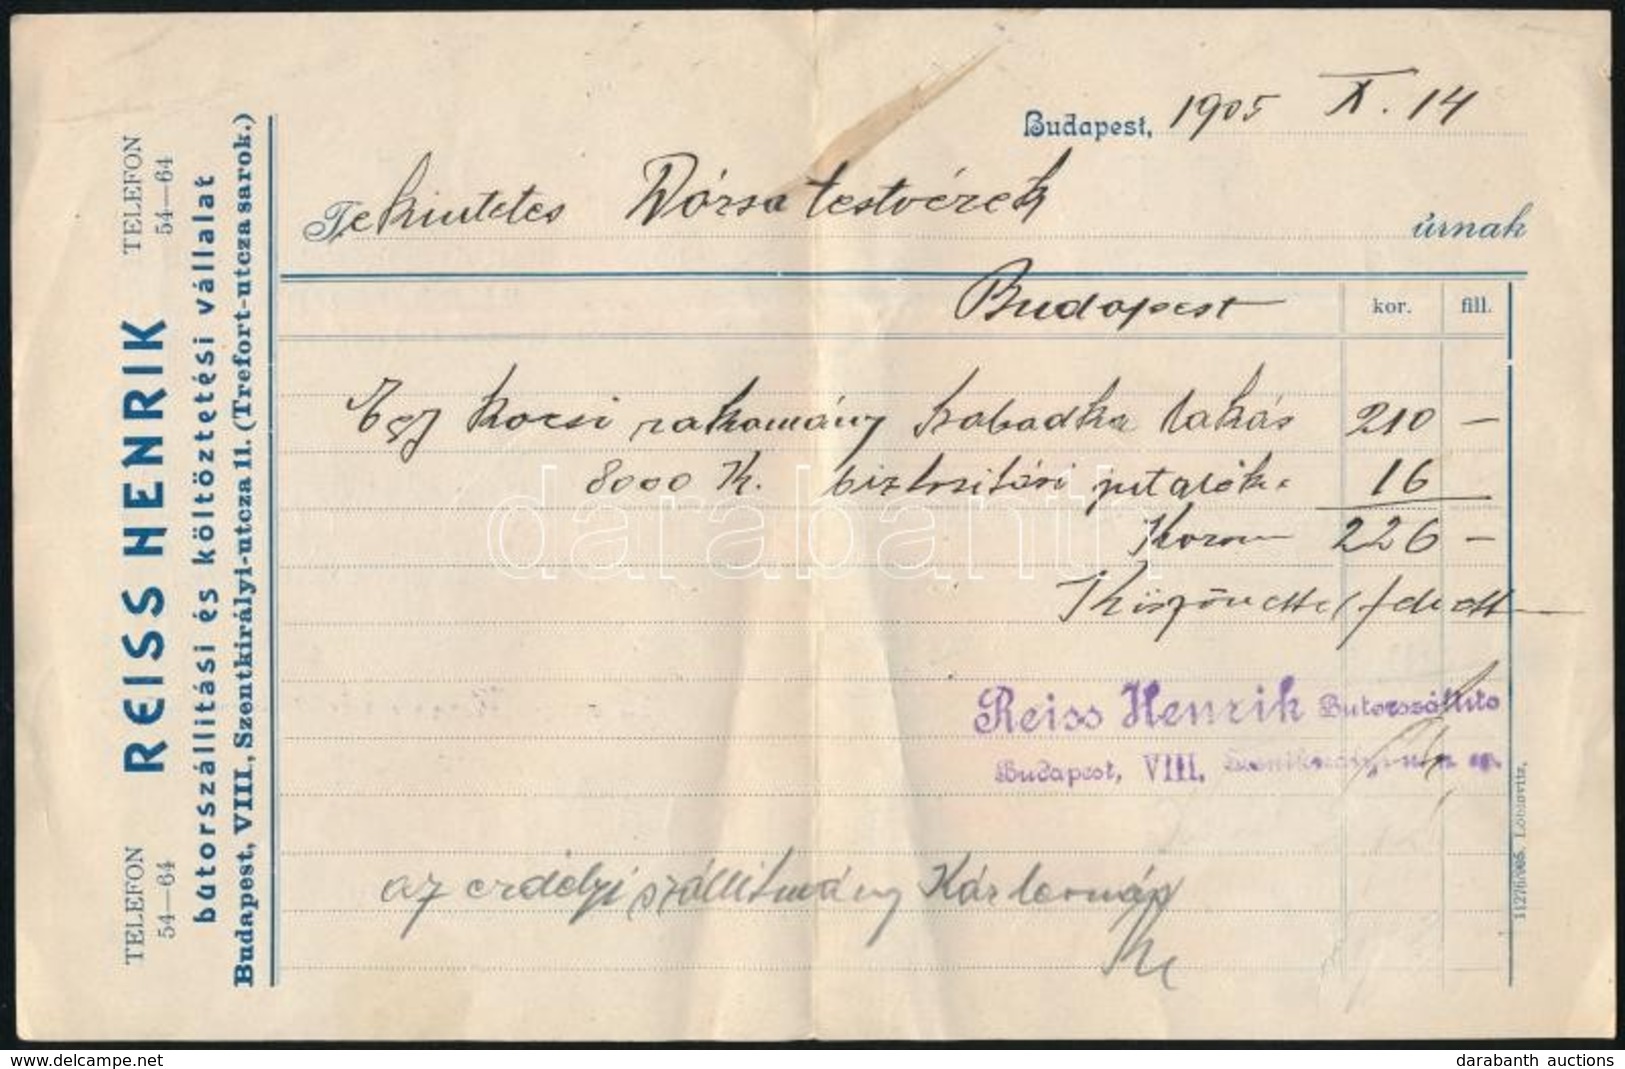 TELEFON
54—64
REISS HENRIK
TELEFON
54—64
bútorszállitási és költöztetési vállalat
Budapest, VIII., Szentkirályi-utcza 11. (Trefort-utcza sarok.)
Budapest, 1905 X. 14
Tekintetes Dózsa testvérek úrnak
Budapest
kor. fill.
Egy kocsi rakomány Szabadka lakás 210 —
8000 K. biztositási 16
Korona 226 —
Köszönettel felvett
Reiss Henrik Butorszállitó
Budapest, VIII,
az erdélyi szállitmány
11276/905.
darabanth
delcampe.net
darabanth auctions